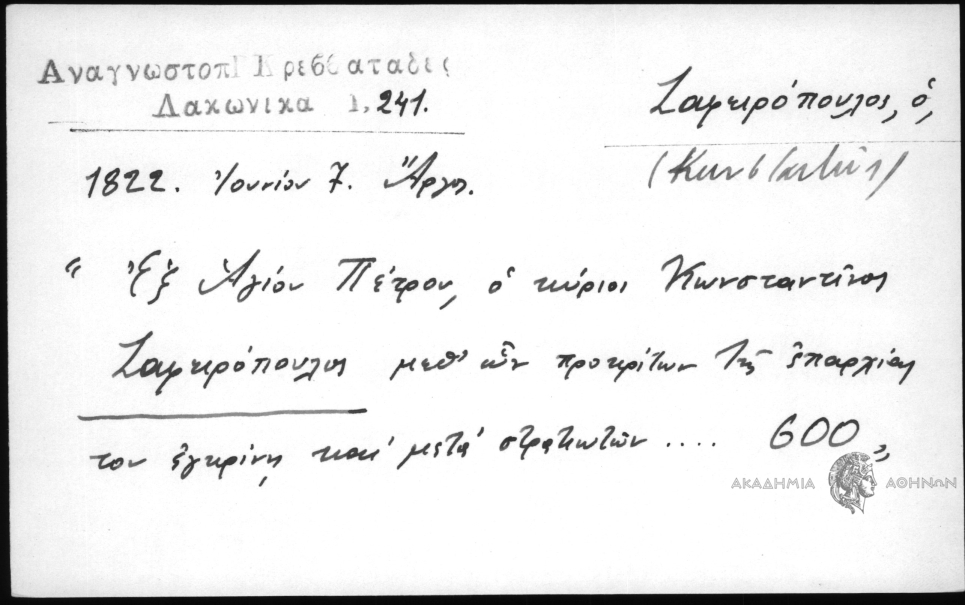 Αναγνωστοπ Κρεββαταδες
Λακωνικα 1, 241.
Ζαφειρόπουλος, ὁ,
(Κωνσταντῖνος)
1822. Ἰουνίου 7. Ἄργος.
" Ἐξ Ἁγίου Πέτρου, ὁ κύριος Κωνσταντῖνος
Ζαφειρόπουλος μεθ' τῶν προκρίτων τῆς ἐπαρχίας
του ἐγκρίνῃ καὶ μετὰ στρατιωτῶν .... 600 "
ΑΚΑΔΗΜΙΑ ΑΘΗΝΩΝ